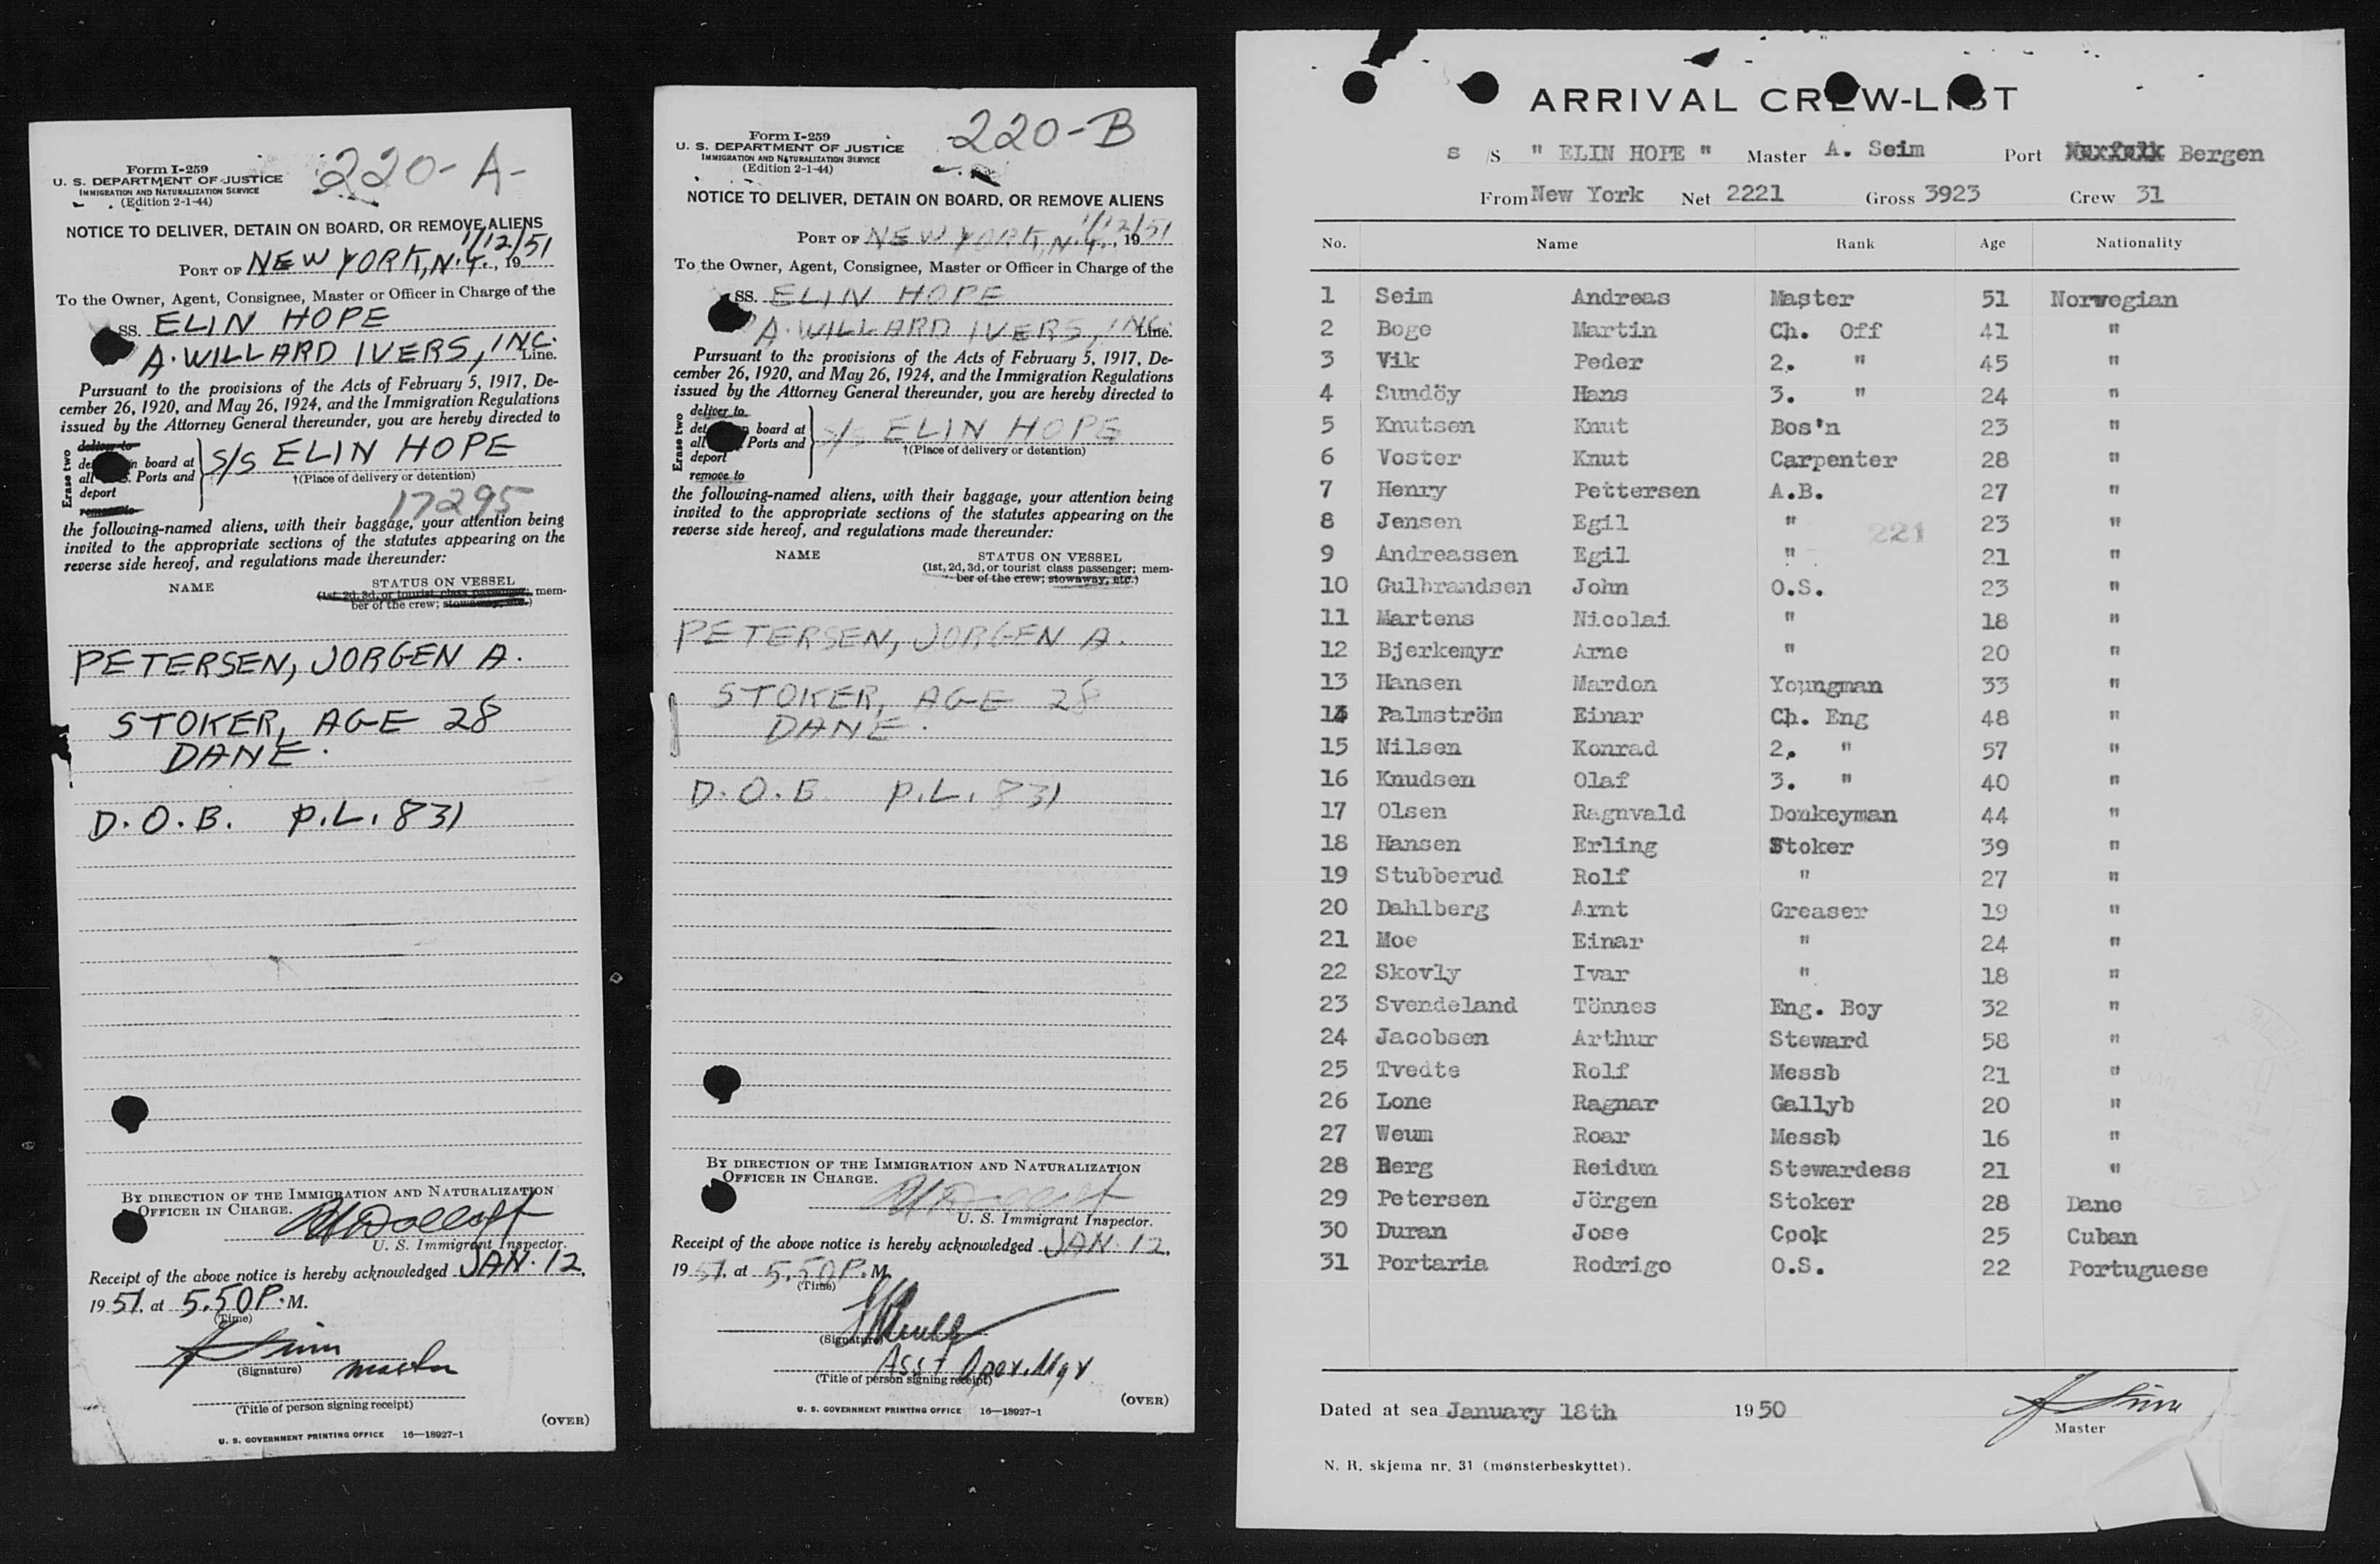 220-A-
Form I-259
U. S. DEPARTMENT OF JUSTICE
IMMIGRATION AND NATURALIZATION SERVICE
(Edition 2-1-44)
NOTICE TO DELIVER, DETAIN ON BOARD, OR REMOVE ALIENS
PORT OF NEW YORK, N.Y., 1/12/ 1951
To the Owner, Agent, Consignee, Master or Officer in Charge of the
SS. ELIN HOPE
A. WILLARD IVERS, INC. Line.
Pursuant to the provisions of the Acts of February 5, 1917, De-
cember 26, 1920, and May 26, 1924, and the Immigration Regulations
issued by the Attorney General thereunder, you are hereby directed to
Erase two
deliver to
de n board at
all S. Ports and
deport
remove to
S/S ELIN HOPE
†(Place of delivery or detention)
17295
the following-named aliens, with their baggage, your attention being
invited to the appropriate sections of the statutes appearing on the
reverse side hereof, and regulations made thereunder:
NAME STATUS ON VESSEL
(1st, 2d, 3d, or tourist class passenger; mem-
ber of the crew; stowaway, etc.)
PETERSEN, JORGEN A.
STOKER, AGE 28
DANE.
D.O.B. P.L. 831
BY DIRECTION OF THE IMMIGRATION AND NATURALIZATION
OFFICER IN CHARGE.
U. S. Immigrant Inspector.
Receipt of the above notice is hereby acknowledged JAN. 12,
1951, at 5.50 P.M.
(Time)
A Seim
(Signature) master
(Title of person signing receipt)
(OVER)
U. S. GOVERNMENT PRINTING OFFICE 16—18927-1
220-B
Form I-259
U. S. DEPARTMENT OF JUSTICE
IMMIGRATION AND NATURALIZATION SERVICE
(Edition 2-1-44)
NOTICE TO DELIVER, DETAIN ON BOARD, OR REMOVE ALIENS
PORT OF NEW YORK, N.Y., 1/12/ 1951
To the Owner, Agent, Consignee, Master or Officer in Charge of the
SS. ELIN HOPE
A. WILLARD IVERS, INC. Line.
Pursuant to the provisions of the Acts of February 5, 1917, De-
cember 26, 1920, and May 26, 1924, and the Immigration Regulations
issued by the Attorney General thereunder, you are hereby directed to
Erase two
deliver to
det board at
all Ports and
deport
remove to
S/S ELIN HOPE
†(Place of delivery or detention)
the following-named aliens, with their baggage, your attention being
invited to the appropriate sections of the statutes appearing on the
reverse side hereof, and regulations made thereunder:
NAME STATUS ON VESSEL
(1st, 2d, 3d, or tourist class passenger; mem-
ber of the crew; stowaway, etc.)
PETERSEN, JORGEN A.
STOKER, AGE 28
DANE.
D.O.B. P.L. 831
BY DIRECTION OF THE IMMIGRATION AND NATURALIZATION
OFFICER IN CHARGE.
U. S. Immigrant Inspector.
Receipt of the above notice is hereby acknowledged JAN. 12,
1951, at 5.50 P.M.
(Time)
(Signature)
Ass't Oper. Mgr
(Title of person signing receipt)
(OVER)
U. S. GOVERNMENT PRINTING OFFICE 16—18927-1
ARRIVAL CREW-LIST
S /S " ELIN HOPE " Master A. Seim Port Norfolk Bergen
From New York Net 2221 Gross 3923 Crew 31
No. Name Rank Age Nationality
1 Seim Andreas Master 51 Norwegian
2 Boge Martin Ch. Off 41 "
3 Vik Peder 2. " 45 "
4 Sundöy Hans 3. " 24 "
5 Knutsen Knut Bos'n 23 "
6 Voster Knut Carpenter 28 "
7 Henry Pettersen A.B. 27 "
8 Jensen Egil " 23 "
221
9 Andreassen Egil " 21 "
10 Gulbrandsen John O.S. 23 "
11 Martens Nicolai " 18 "
12 Bjerkemyr Arne " 20 "
13 Hansen Mardon Youngman 33 "
14 Palmström Einar Ch. Eng 48 "
15 Nilsen Konrad 2. " 57 "
16 Knudsen Olaf 3. " 40 "
17 Olsen Ragnvald Donkeyman 44 "
18 Hansen Erling Stoker 39 "
19 Stubberud Rolf " 27 "
20 Dahlberg Arnt Greaser 19 "
21 Moe Einar " 24 "
22 Skovly Ivar " 18 "
23 Svendeland Tönnes Eng. Boy 32 "
24 Jacobsen Arthur Steward 58 "
25 Tvedte Rolf Messb 21 "
26 Lone Ragnar Gallyb 20 "
27 Weum Roar Messb 16 "
28 Berg Reidun Stewardess 21 "
29 Petersen Jörgen Stoker 28 Dane
30 Duran Jose Cook 25 Cuban
31 Portaria Rodrigo O.S. 22 Portuguese
Dated at sea January 18th 1950
A Seim
Master
N. R. skjema nr. 31 (mønsterbeskyttet).